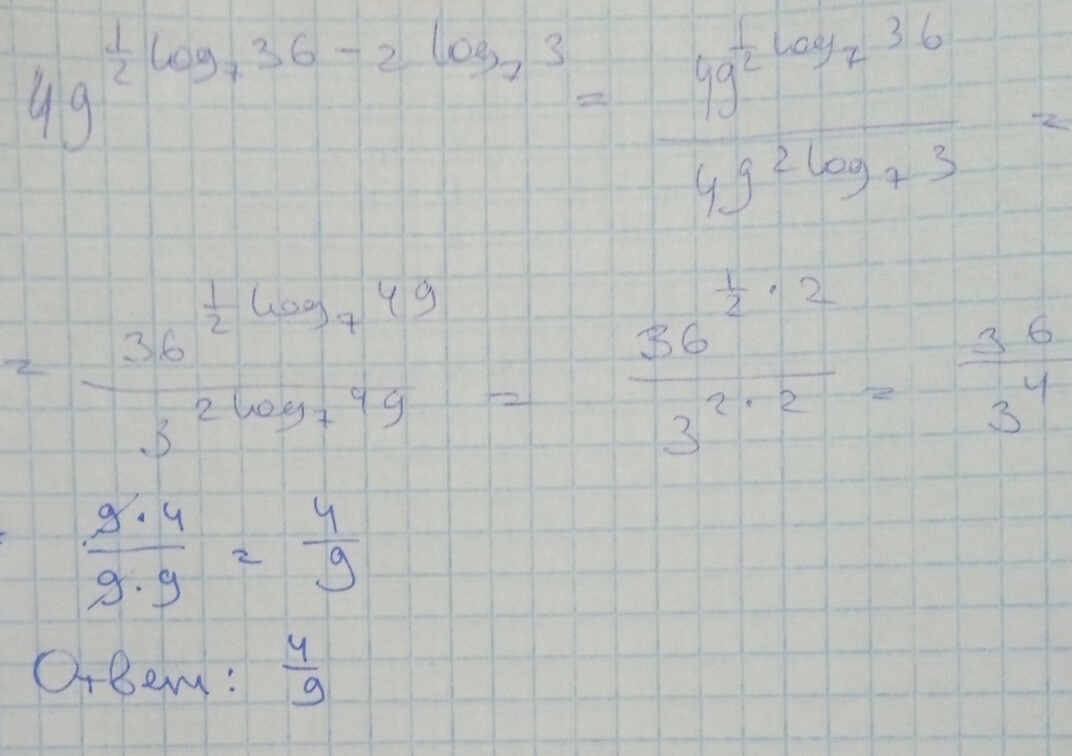 49^(½ log₇ 36 − 2 log₇ 3) = 49^(½ log₇ 36) / 49^(2 log₇ 3) =
= 36^(½ log₇ 49) / 3^(2 log₇ 49) = 36^(½ · 2) / 3^(2 · 2) = 36 / 3⁴
= (9 · 4) / (9 · 9) = 4/9
Ответ: 4/9